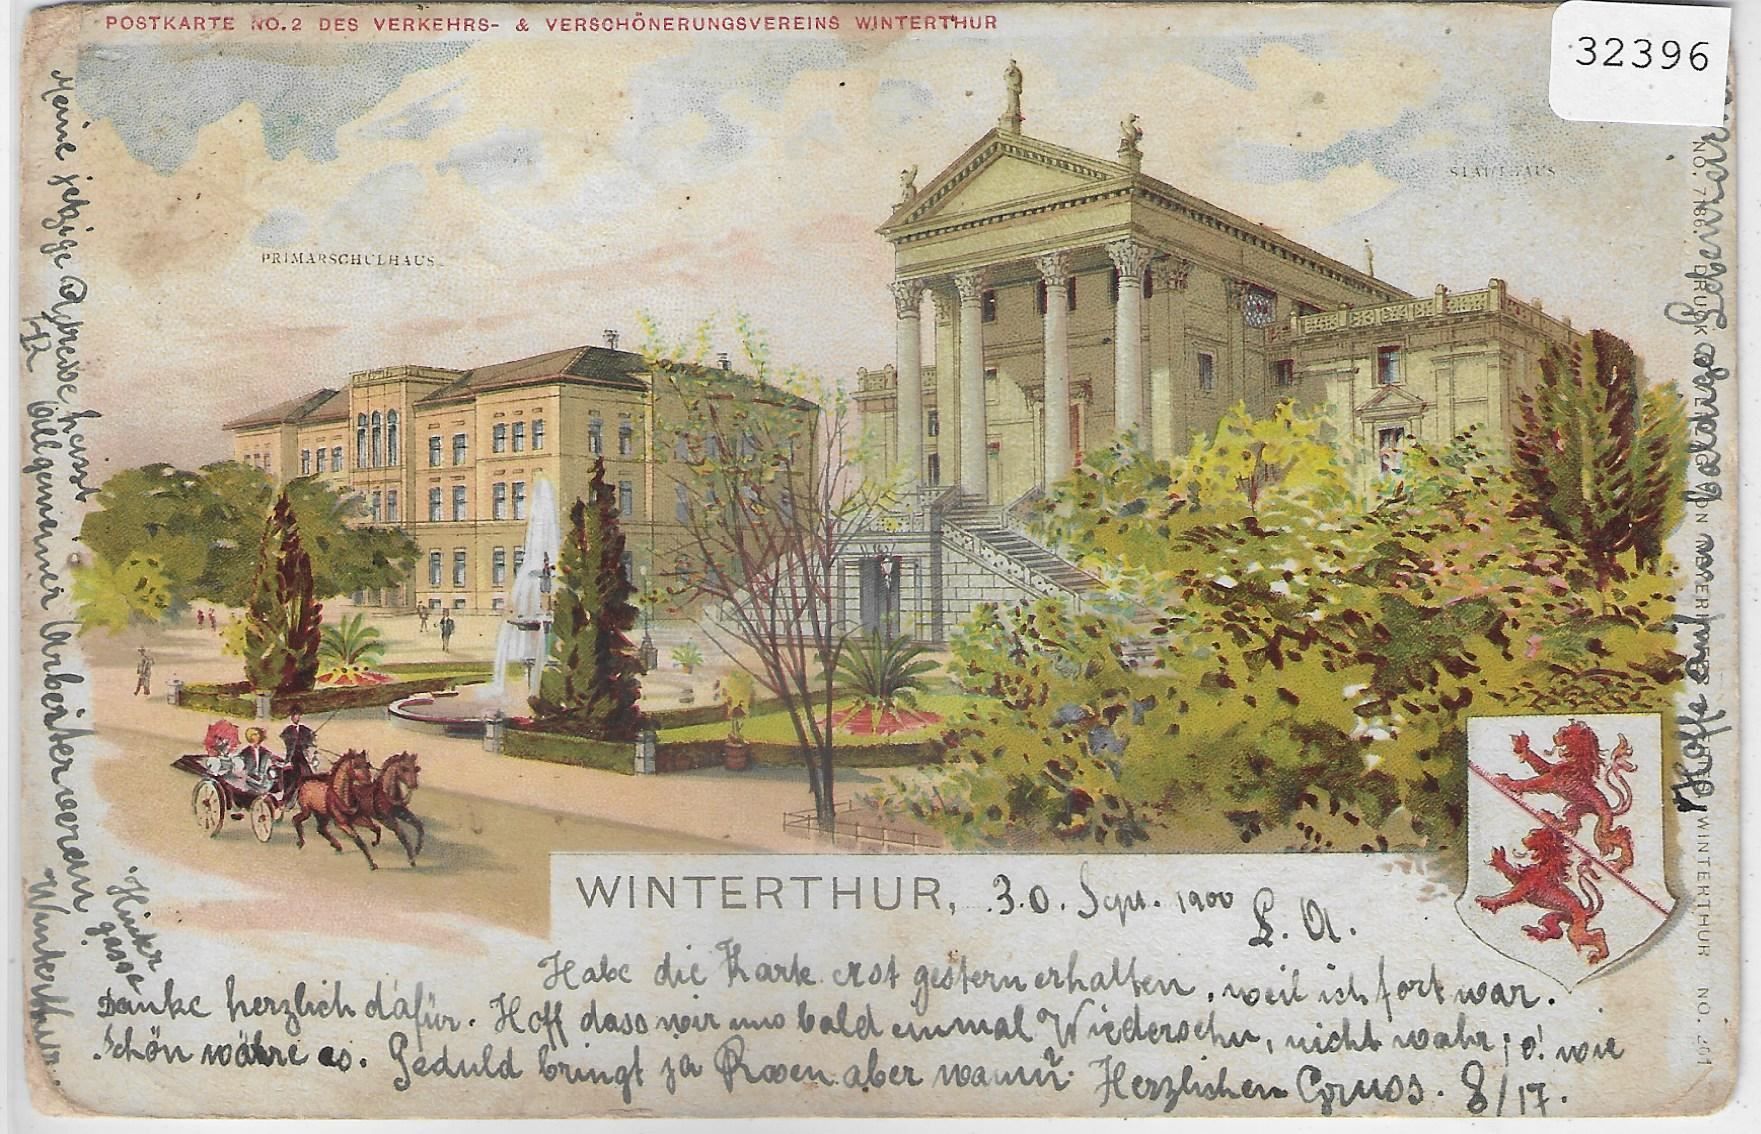 POSTKARTE NO. 2 DES VERKEHRS- & VERSCHÖNERUNGSVEREINS WINTERTHUR
32396
STADTHAUS
PRIMARSCHULHAUS.
WINTERTHUR, 30. Sept. 1900
L. A.
Habe die Karte erst gestern erhalten, weil ich fort war.
Danke herzlich dafür. Hoff dass wir uns bald einmal Wiedersehn, nicht wahr; o! wie
Schön währe es. Geduld bringt ja Rosen aber wann? Herzlichen Gruss. 8/17.
Meine jetzige Adresse heisst
Allgemeiner Arbeiterverein
Winterthur.
Hoffe auf von Verlange Lebenzeichen
NO. 786. DRUCK & VERLAG VON WINTERTHUR NO. 261